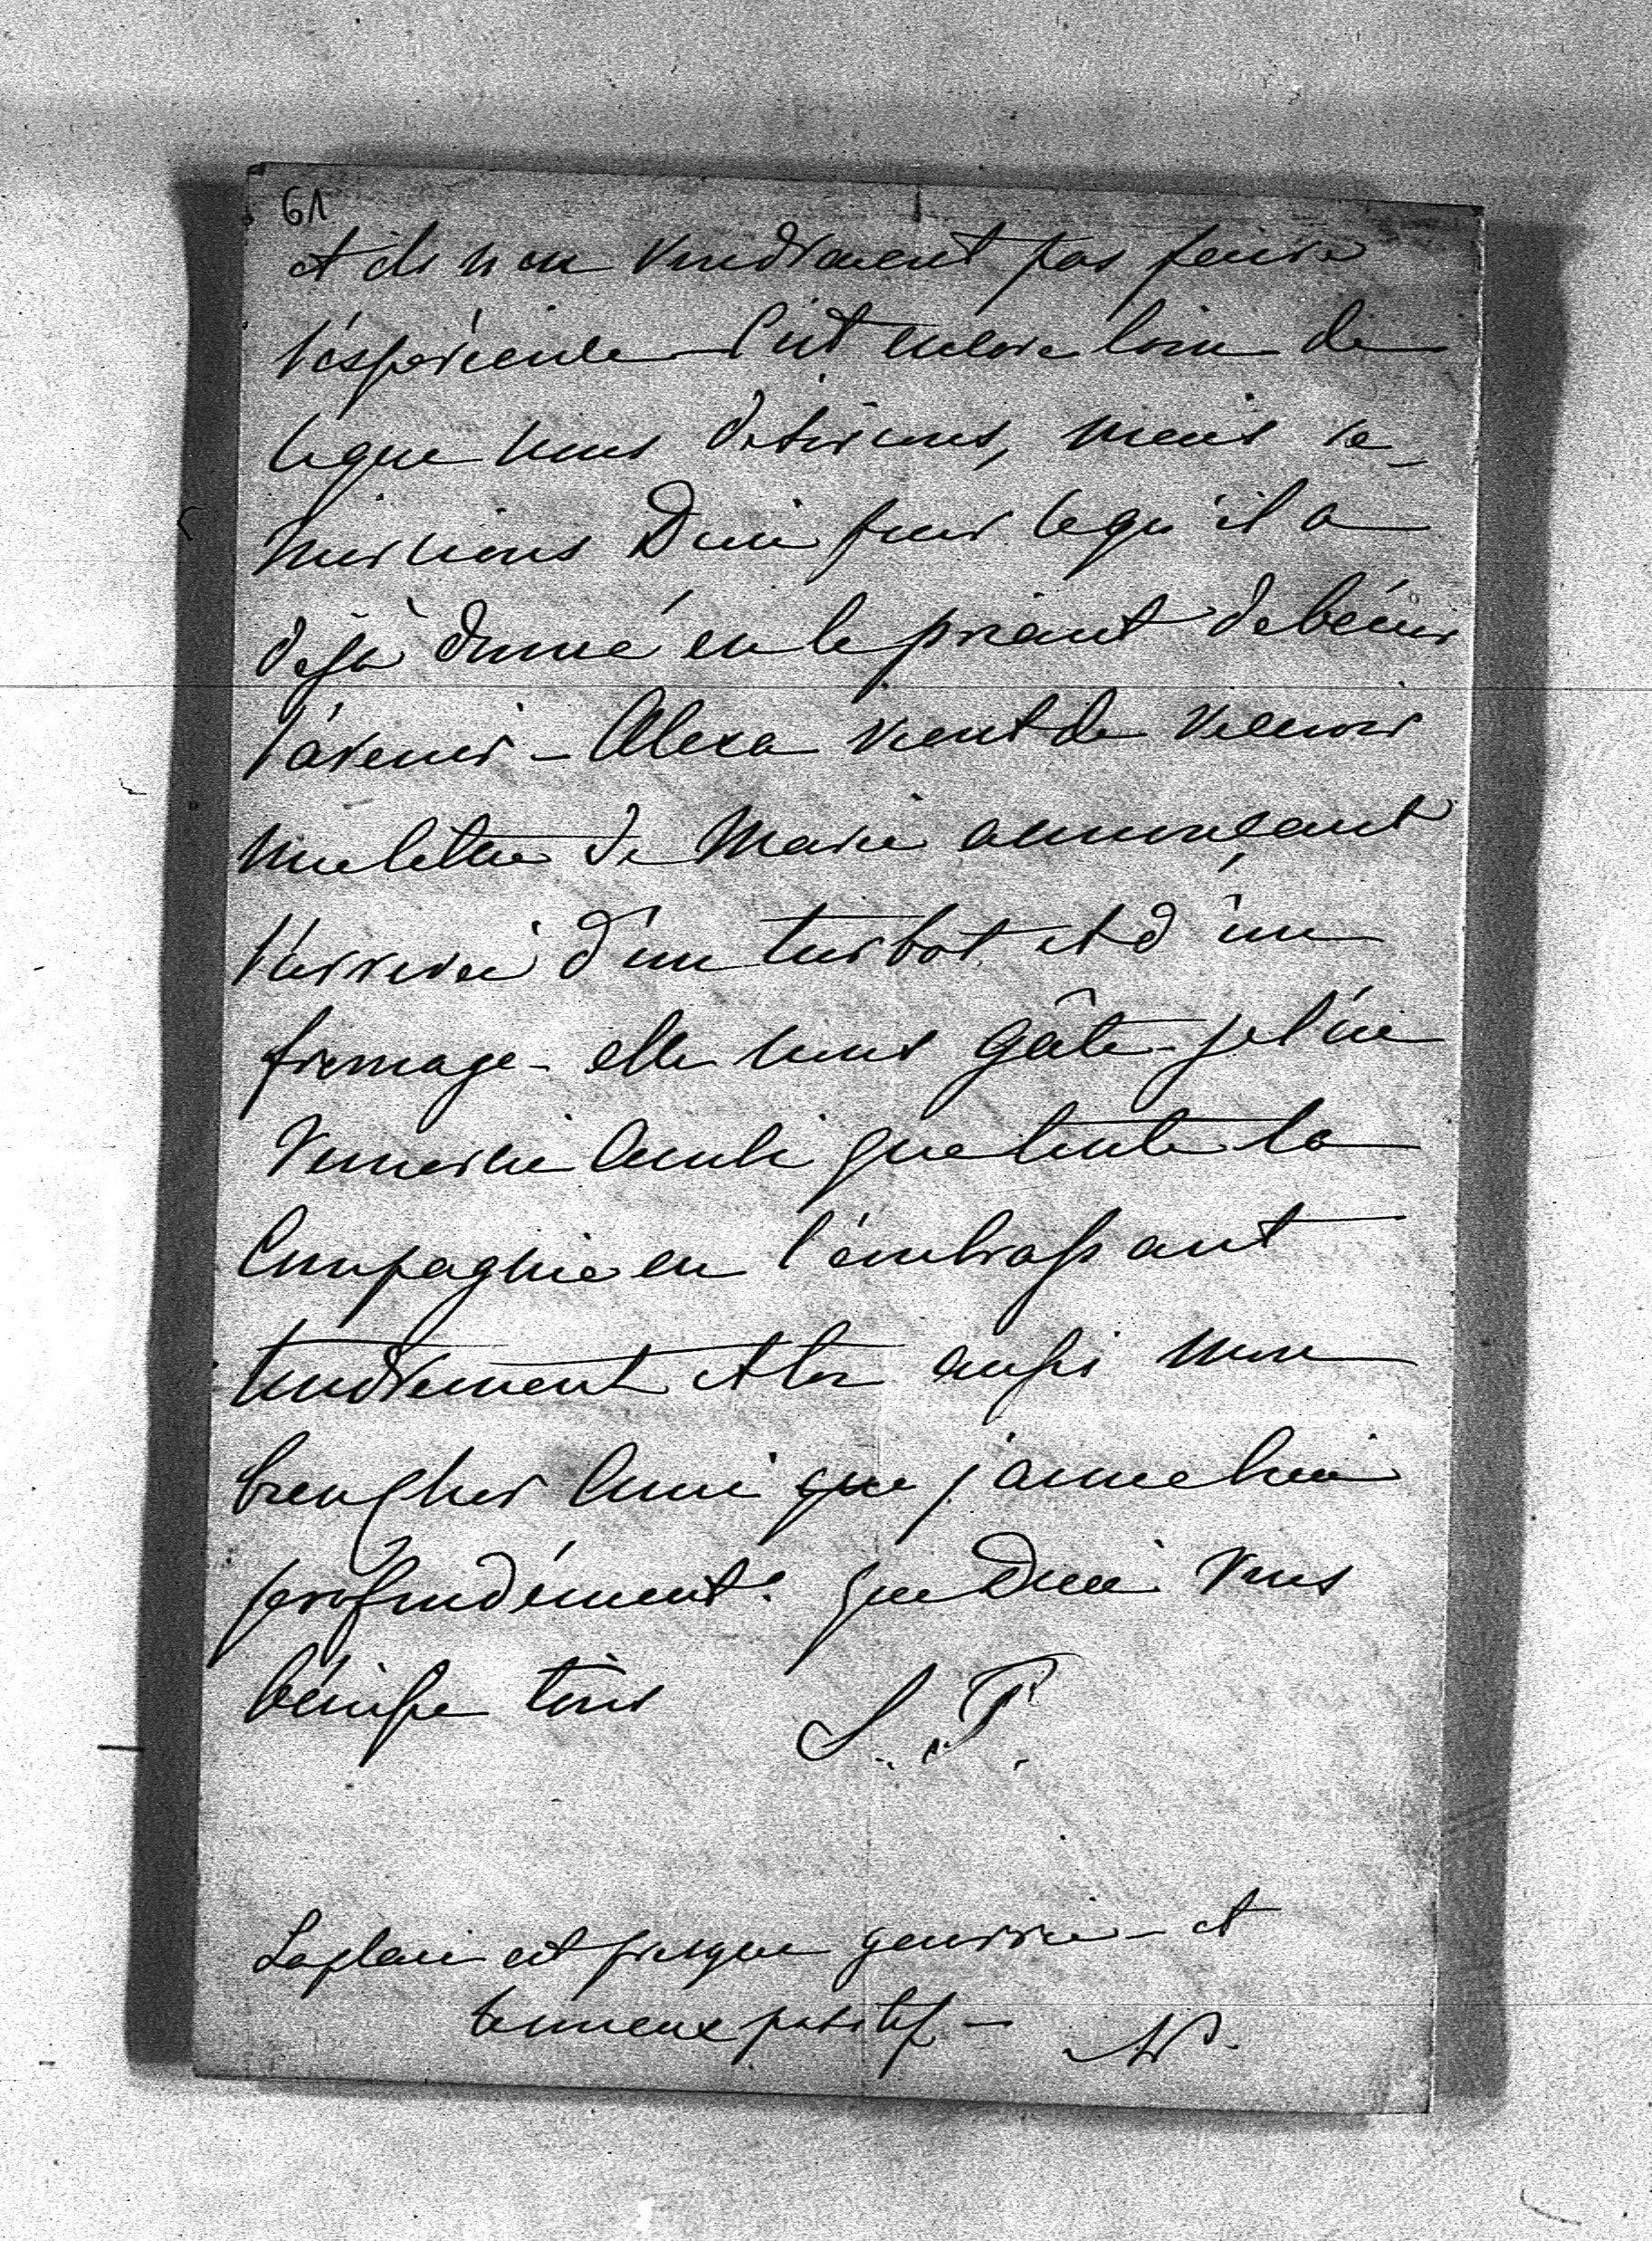 61
et ils n'en voudraient pas faire
l'éspérience - C'est encore loin de
ce que nous désirons, mais re-
mercions Dieu pour ce qu'il a
déjà donné en le priant de bénir
l'avenir - Alexa vient de recevoir
une lettre de Marie annonçant
l'arrivée d'un turbot et d'un
fromage - elle nous gâte - je l'en
remercie ainsi que toute la
Compagnie en l'embrassant
tendrement et toi aussi mon
bien cher Ami que j'aime bien
profondément. que Dieu vous
bénisse tous S. P.
La plaie est presque guérie - et
le mieux positif -